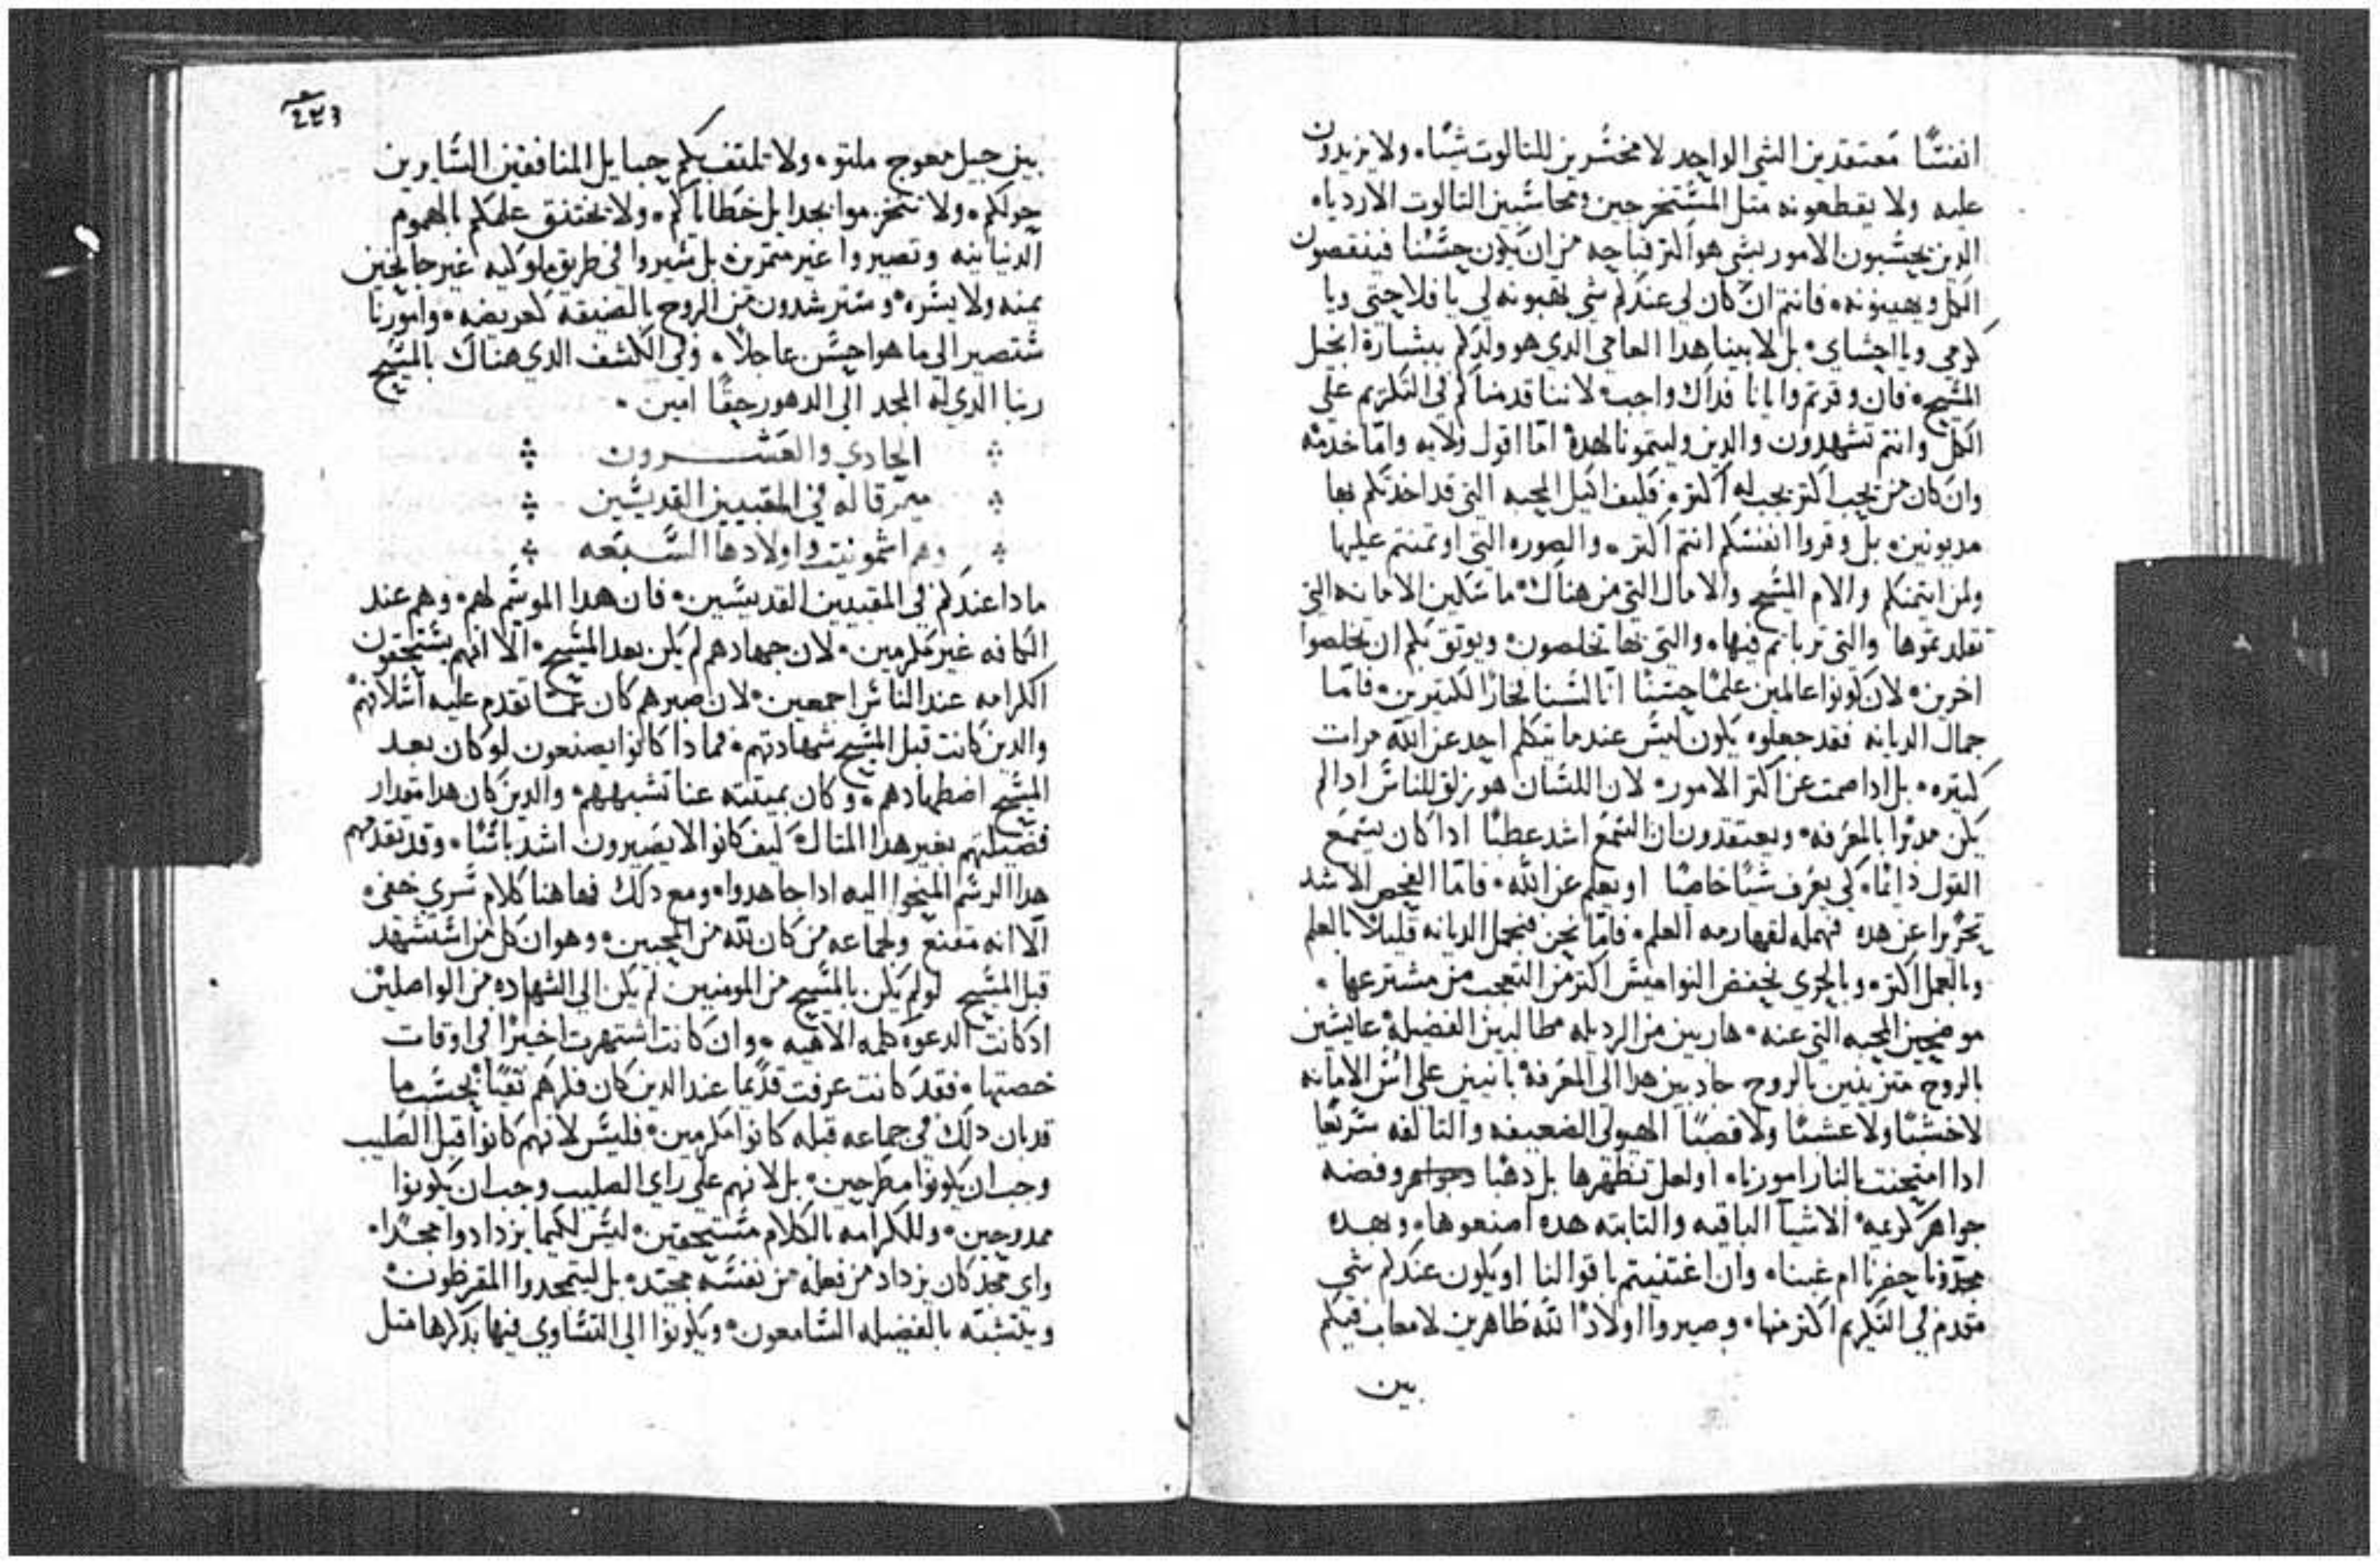 انفسنا معتقدين الشي الواحد لا مخسرين للتالوت شيًا، ولا يزيدون
عليه ولا يقطعونه متل المستخرجين ومحاسبين التالوت الاردياء
الدين يحسبون الامور بشي هو اكتر قباحه من ان يكون حسنا فينقصون
الكل ويهينونه، فانتم ان كان لي عندكم شي تهبونه لي يا فلاحتي ويا
كرمي ويا احشاي، بل لابينا هدا العامي الدي هو ولدكم ببشارة انجيل
المسيح، فان وقرتم وايانا فداك واجب، لاننا قدمناكم في التكريم على
الكل وانتم تشهدون والدين وليتمونا لهده اما اقول ولايه واما خدمه
وان كان من يحب اكتر يجب له اكتر، فكيف اكيل المحبه التي قد اخدتكم بها
مديونين، بل وقروا انفسكم انتم اكتر، والصوره التي اوتمنتم عليها
ولمن ايتمنكم والام المسيح والامال التي من هناك، ماسكين الامانه التي
تقلدتموها والتي تربايتم فيها، والتي بها تخلصون، ويوتق بكم ان تخلصوا
اخرين، لان كونوا عالمين علمًا حسنًا انا لسنا لحاز الكتيرين، فاما
جمال الديانه فقد جعلوه يكون ليس عندما يتكلم احد عن الله مرات
كتيره، بل ادا صمت عن اكتر الامور، لان اللسان هو زلق للناس ادا لم
يكن مدبرا بالمعرفه، ويعتقدون ان السمع اشد عطبًا ادا كان يسمع
القول دايمًا، كي يعرف شيًا خاصًا او يعلم عن الله، فاما الفحص الاشد
تحريرا عن هده فنهمله لقهارمه العلم، فاما نحن فنجمل الديانه قليلًا بالعلم
وبالعمل اكتر، وبالحري بحفض النواميس اكتر من التعجب من مشترعها،
موضحين المحبه التي عنه، هاربين من الرديله مطالبين الفضيله عايشين
بالروح متزينين بالروح جادبين هدا الى المعرفه بانين على اس الامانه
لا خشبًا ولا عشبًا ولا قصبًا الهيولى الضعيفه والتالفه سريعًا
ادا امتحنت بالنار امورنا، او لعل تطهرها بل دهبا وفضه
جواهر كريمه الاشيا الباقيه والتابته هده اصنعوها، وبهده
مجدونا حضرنا ام غبنا، وان اغتنيتم باقوالنا او يكون عندكم شي
متقدم في التكريم اكتر منها، وصيروا اولادًا لله طاهرين لا معاب فيكم
بين
٤٢٣
بين جيل معوج ملتو، ولا تلتف بكم حبايل المنافقين السايرين
حولكم، ولا تتحزموا بجدايل خطاياكم، ولا يختنق علمكم بالهموم
الدنيانيه وتصيروا غير متمرين بل تسيروا في طريق ملوكيه غير جانحين
يمنه ولا يسره، وسترشدون من الروح بالضيقه كعريضه، وامورنا
ستصير الى ما هو احسن عاجلًا، وفي الكشف الدي هناك بالمسيح
ربنا الدي له المجد الى الدهور حقًا امين،
الحادي والعشرون
ميمر قاله في المقبيين القديسين
وهم اشمونيت واولادها السبعه
مادا عندكم في المقبيين القديسين، فان هدا الموسم لهم، وهم عند
الكافه غير مكرمين، لان جهادهم لم يكن بعد المسيح، الا انهم يستحقون
الكرامه عند الناس اجمعين، لان صبرهم كان عما تقدم عليه اسلافهم
والدين كانت قبل المسيح شهادتهم، فمادا كانوا يصنعون لو كان بعد
المسيح اضطهادهم، وكان بميتته عنا تشبههم، والدين كان هدا مقدار
فضيلتهم بغير هدا المتال، كيف كانوا لا يصيرون اشد باسًا، وقد تقدمهم
هدا الرسم المنحوا اليه ادا جاهدوا، ومع دلك فها هنا كلام سري خفي
الا انه مقنع ولجماعه من كان لله من المحبين، وهو ان كل من استشهد
قبل المسيح لو لم يكن بالمسيح من المومنين لم يكن الى الشهاده من الواصلين
اد كانت الدعوه كلمه الاهيه، وان كانت اشتهرت اخيرًا في اوقات
خصتها، فقد كانت عرفت قديما عند الدين كان فكرهم نقيًا بحسب ما
قد بان دلك في جماعه قبله كانوا مكرمين، فليس لانهم كانوا قبل الصليب
وجب ان يكونوا مطرحين، بل لانهم على راي الصليب وجب ان يكونوا
ممدوحين، وللكرامه بالكلام مستحقين، ليس لكيما يزدادوا مجدًا،
واي مجد كان يزداد من فعله من نفسه ممجد، بل ليتمجدوا المقرظون
ويتشبه بالفضيله السامعون، ويكونوا الى التساوي فيها بدكرها متل